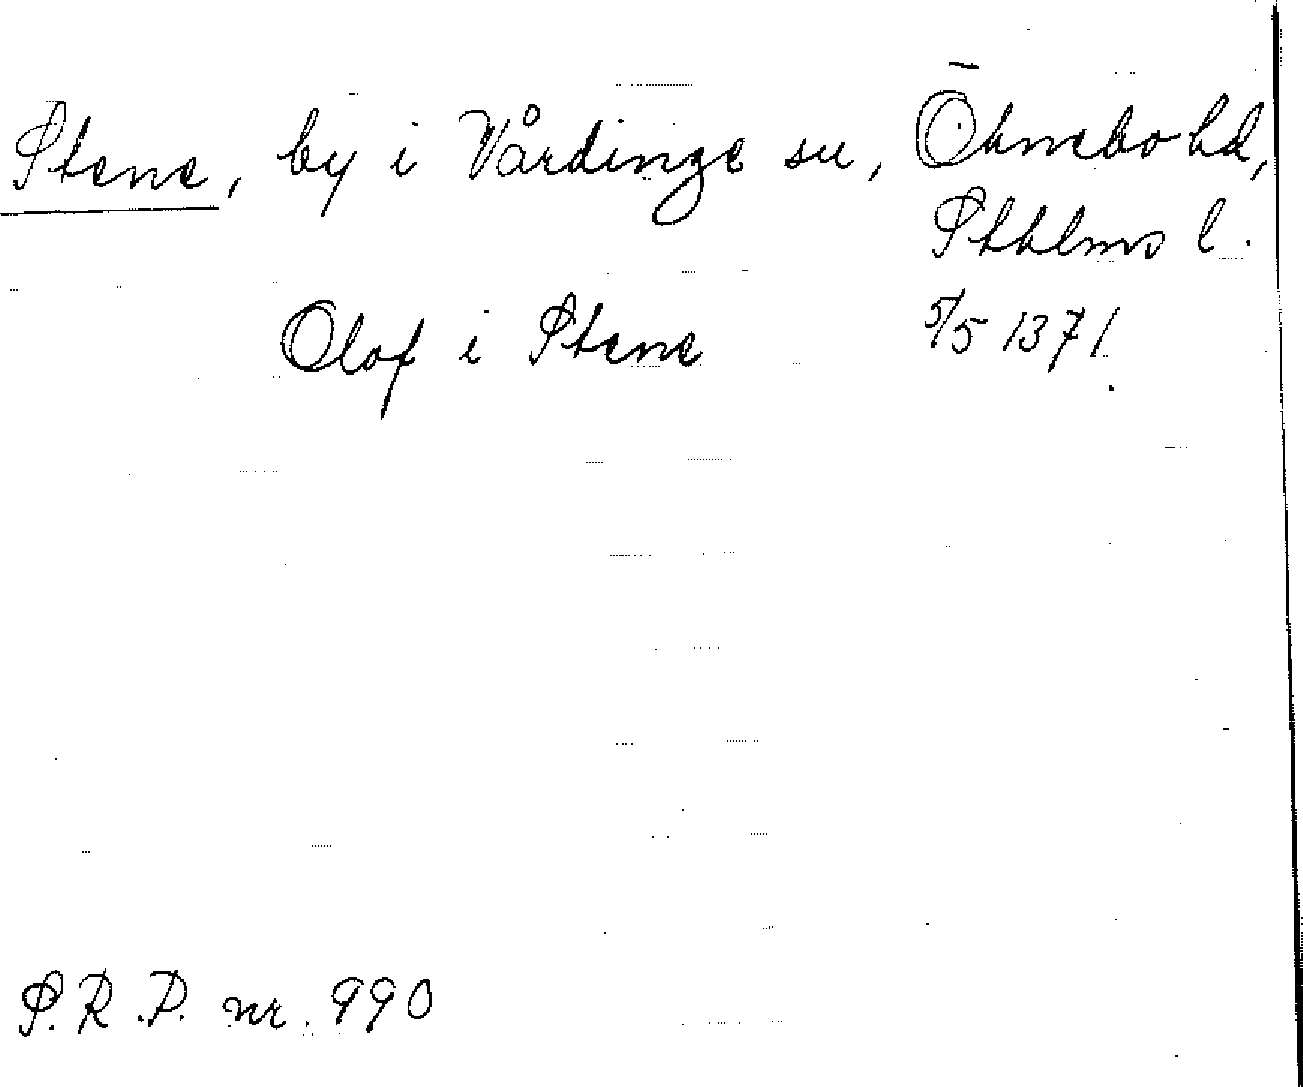 Stene, by i Vårdinge sn, Öknebo hd,
Sthlms l.
Olof i Stene 5/5 1371.
S.R.P. nr. 990